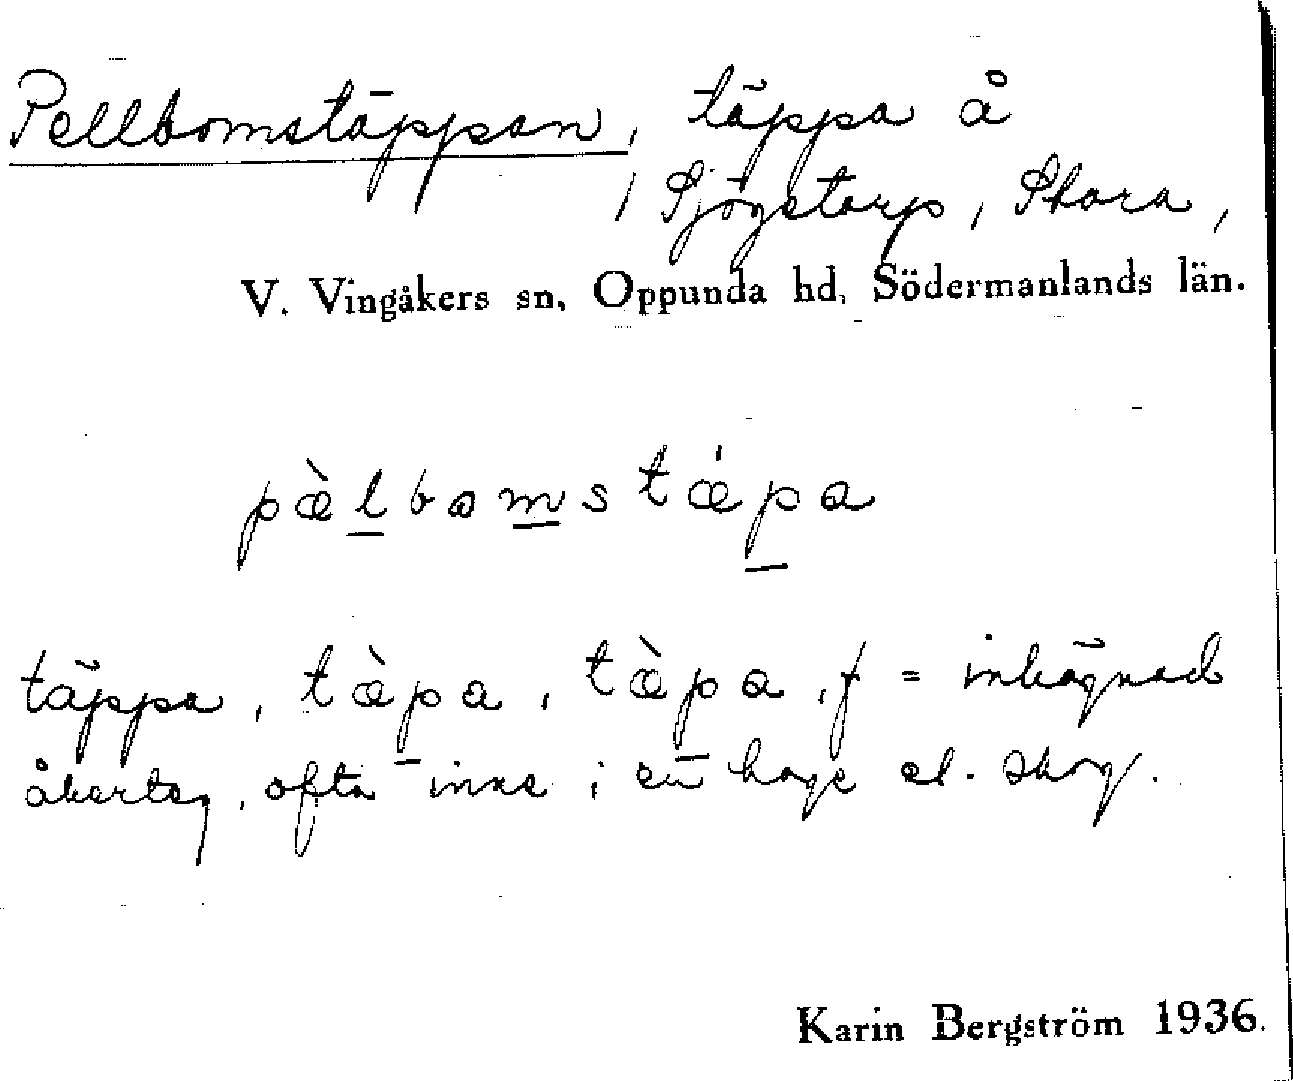 Pellbomstäppan, täppa å
Sjögstorp, Stora,
V. Vingåkers sn, Oppunda hd, Södermanlands län.
pæ̀l̲bom̲stǽp̲a
täppa, tæ̀p̲a, tæ̀p̲a, f = inhägnad
åkerteg, ofta inne i en hage el. skog.
Karin Bergström 1936.